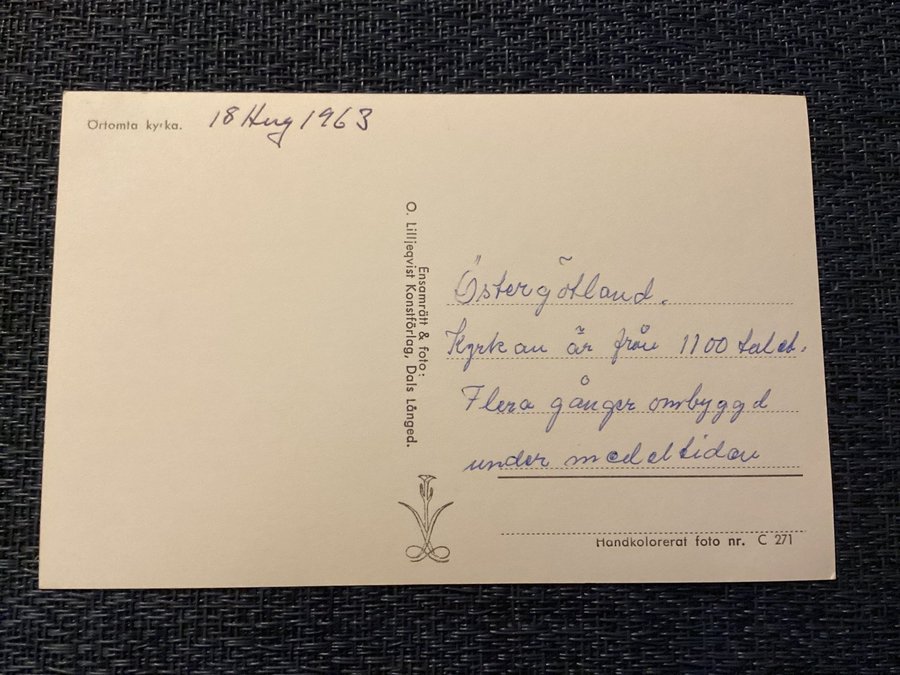 Örtomta kyrka. 18 Aug 1963
Ensamrätt & foto:
O. Lilljeqvist Konstförlag, Dals Långed.
Östergötland.
Kyrkan är från 1100 talet.
Flera gånger ombyggd
under medeltiden
Handkolorerat foto nr. C 271